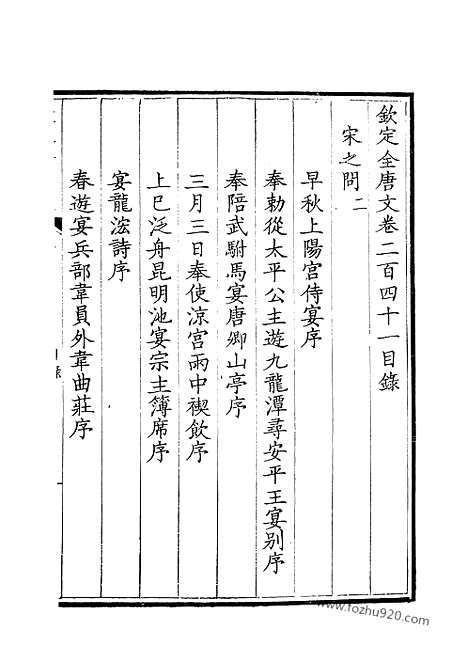 欽定全唐文卷二百四十一目錄
宋之問二
早秋上陽宮侍宴序
奉勅從太平公主遊九龍潭尋安平王宴別序
奉陪武駙馬宴唐卿山亭序
三月三日奉使涼宮雨中禊飲序
上巳泛舟昆明池宴宗主簿席序
宴龍泓詩序
春遊宴兵部韋員外韋曲莊序
www.fozhu920.com